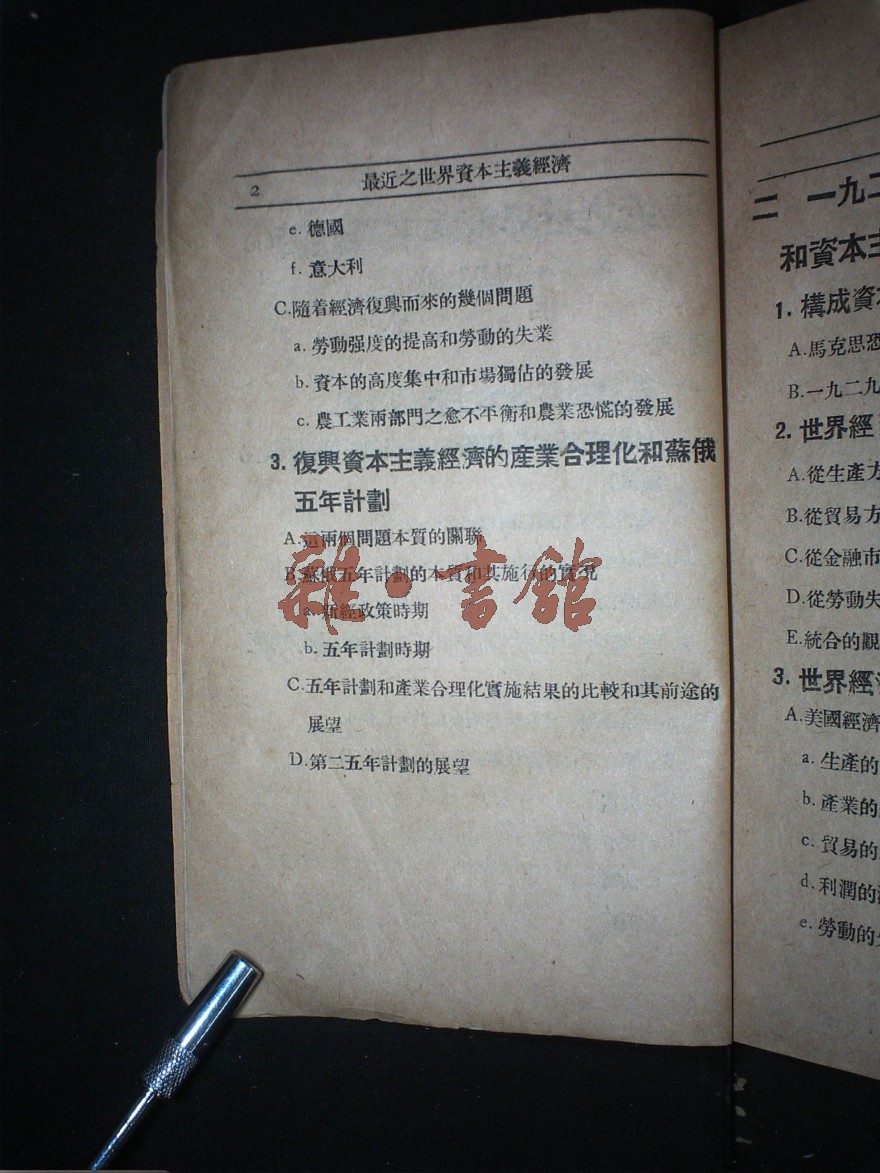 2 最近之世界資本主義經濟
e. 德國
f. 意大利
C.隨着經濟復興而來的幾個問題
a. 勞動强度的提高和勞動的失業
b. 資本的高度集中和市場獨佔的發展
c. 農工業兩部門之愈不平衡和農業恐慌的發展
3. 復興資本主義經濟的産業合理化和蘇俄
五年計劃
A.這兩個問題本質的關聯
B.蘇俄五年計劃的本質和其施行的實現
a. 新經政策時期
b. 五年計劃時期
C.五年計劃和產業合理化實施結果的比較和其前途的
展望
D.第二五年計劃的展望
雜·書館
二 一九二
和資本主
1. 構成資本
A.馬克思恐
B.一九二九
2. 世界經
A.從生產方
B.從貿易方
C.從金融市
D.從勞動失
E.統合的觀
3. 世界經濟
A.美國經濟
a. 生產的
b. 產業的
c. 貿易的
d. 利潤的
e. 勞動的